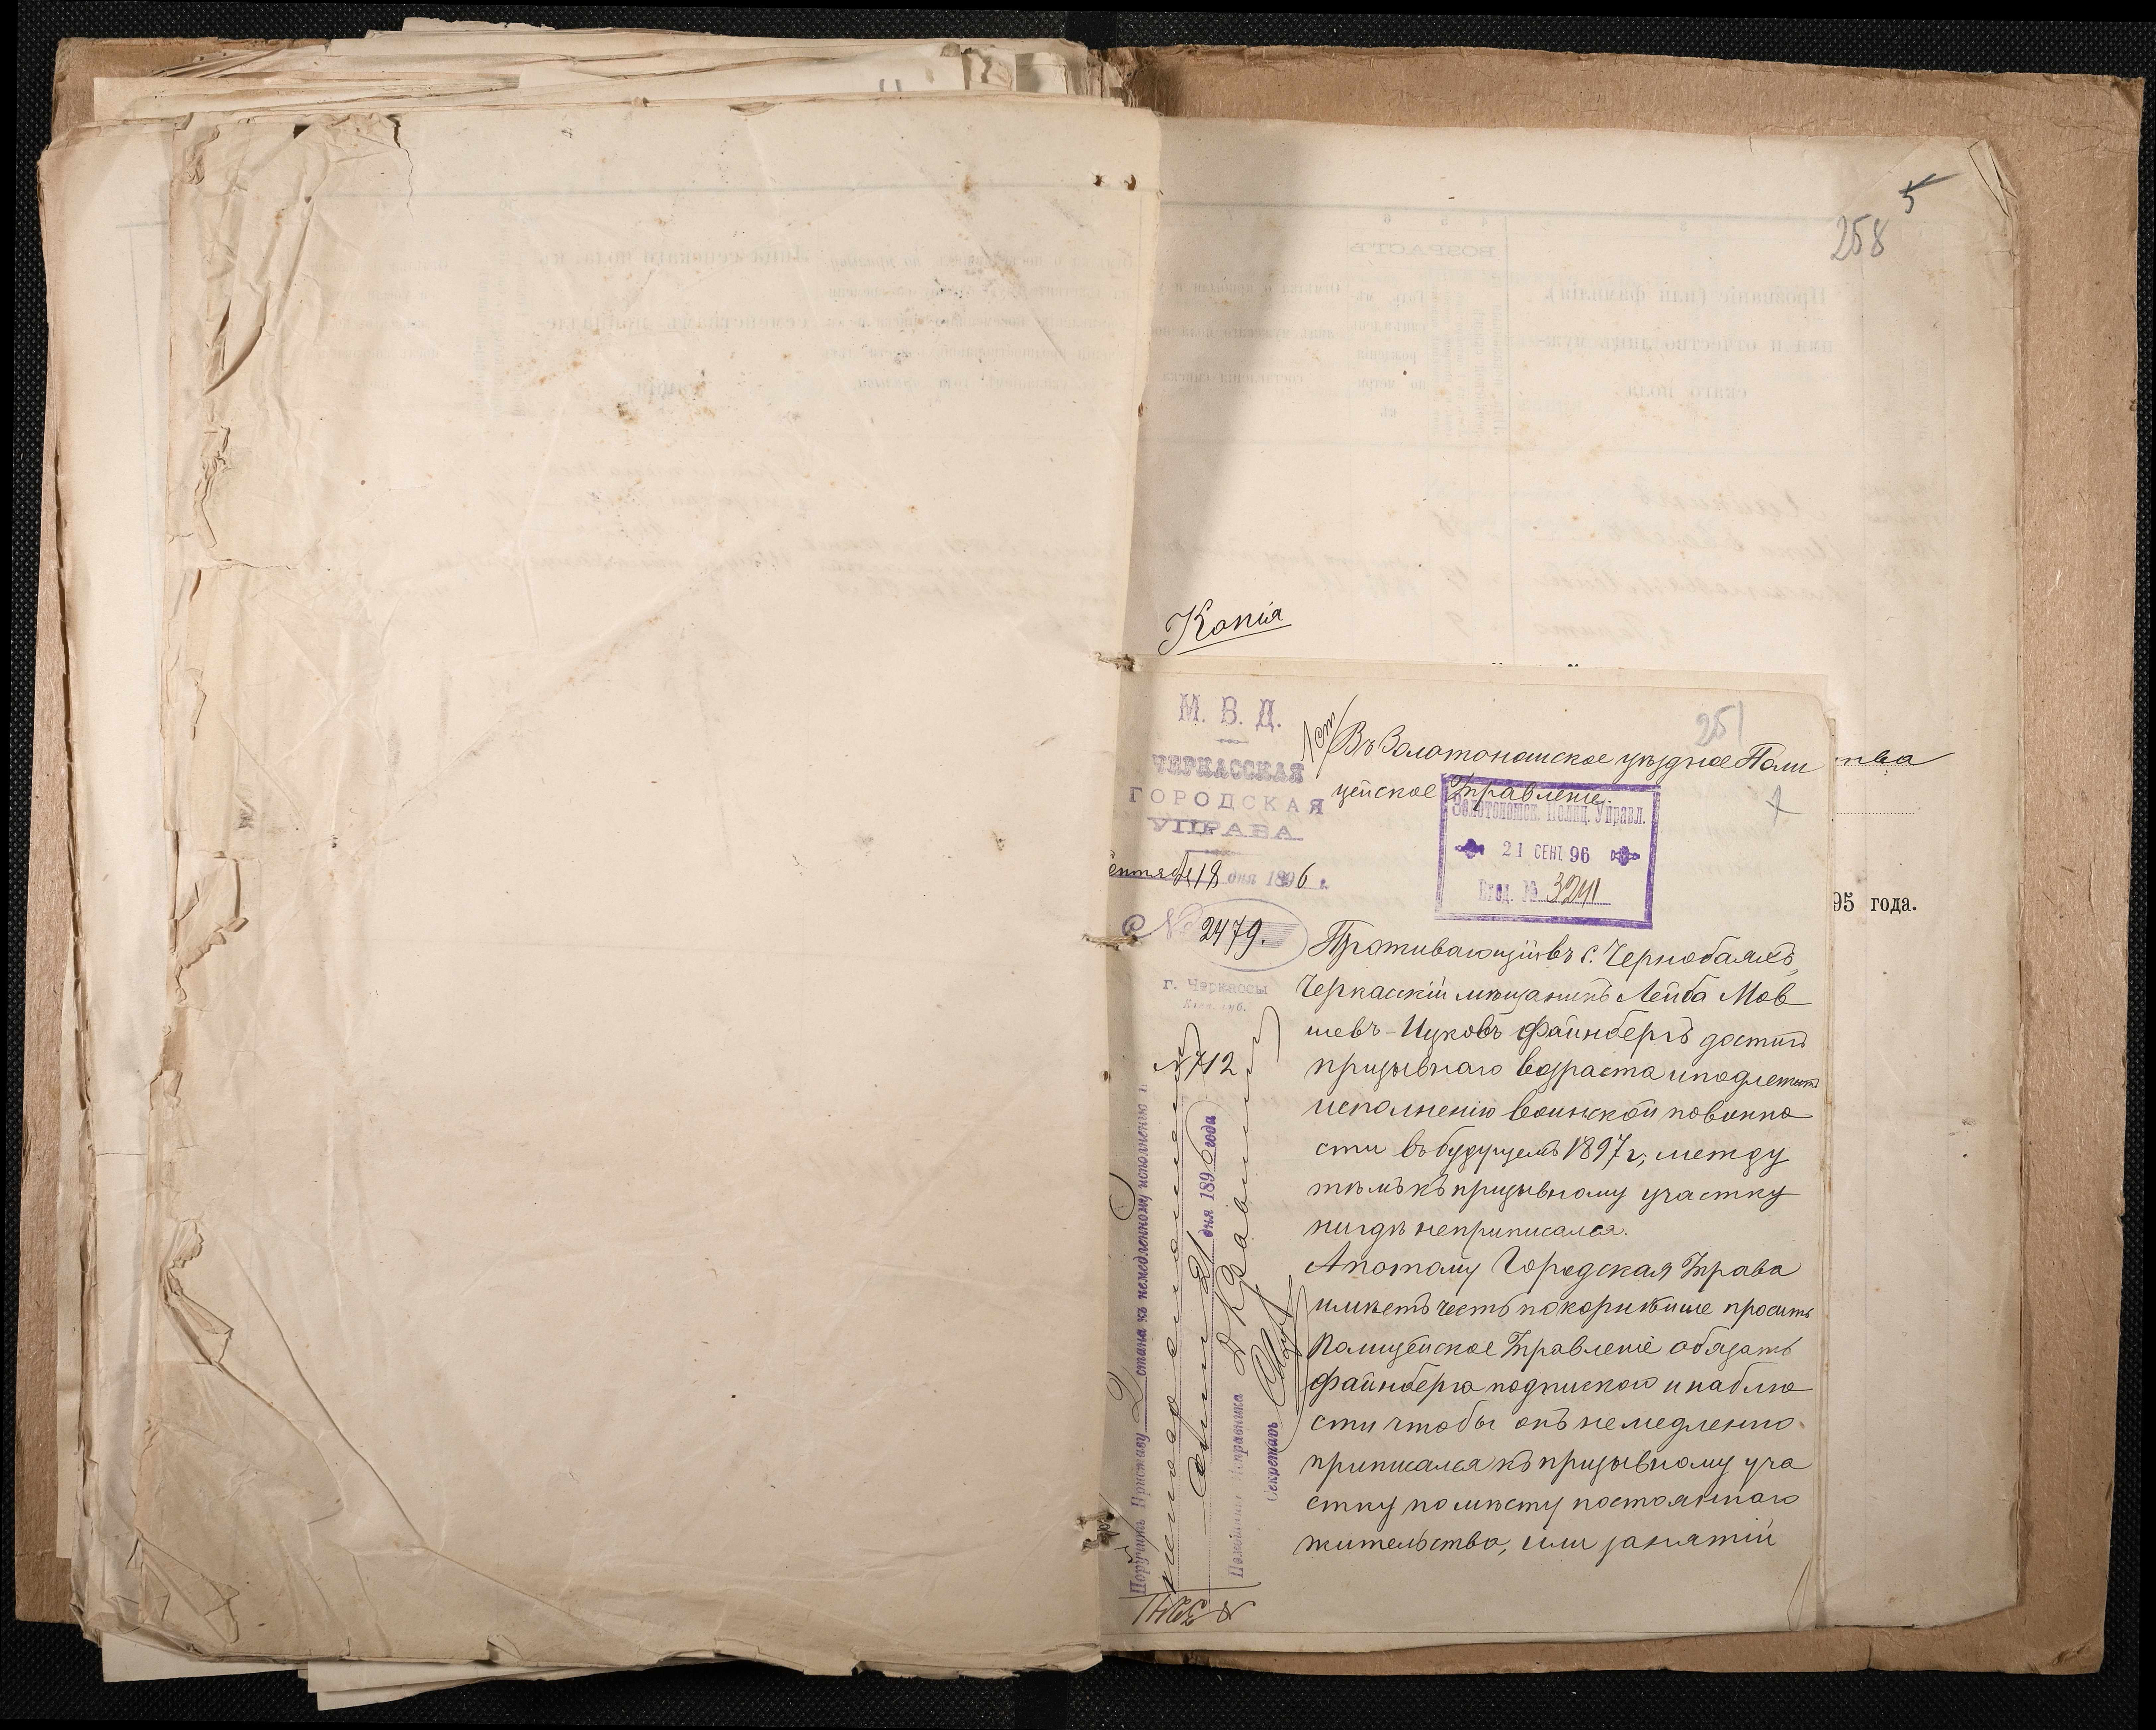 5
258
Копія
251
М. В. Д.
ЧЕРКАССКАЯ
ГОРОДСКАЯ
УПРАВА
Сентября 18 дня 1896 г.
№ 2479.
г. Черкассы
Кіев. губ.
№ 712
1 ст
Въ Золотоношское уѣздное Поли
цейское Управленіе.
Золотоношск. Полиц. Управл.
21 СЕНТ 96
Вход. № 3241
95 года.
Проживающій въ с. Чернобаяхъ,
Черкасскій мѣщанинъ Лейба Мов
шевъ-Ицковъ Файнбергъ достигъ
призывнаго возраста и подлежитъ
исполненію воинской повинно
сти въ будущемъ 1897 г., между
тѣмъ къ призывному участку
нигдѣ не приписался.
А потому Городская Управа
имѣетъ честь покорнѣйше просить
Полицейское Управленіе обязать
Файнберга подпискою и наблю
сти чтобы онъ немедленно
приписался къ призывному уча
стку по мѣсту постояннаго
жительства, или занятій
Поручить Приставу 2 стана къ немедленному исполненію и
дня 1896 года
Помощникъ Исправника
Секретарь